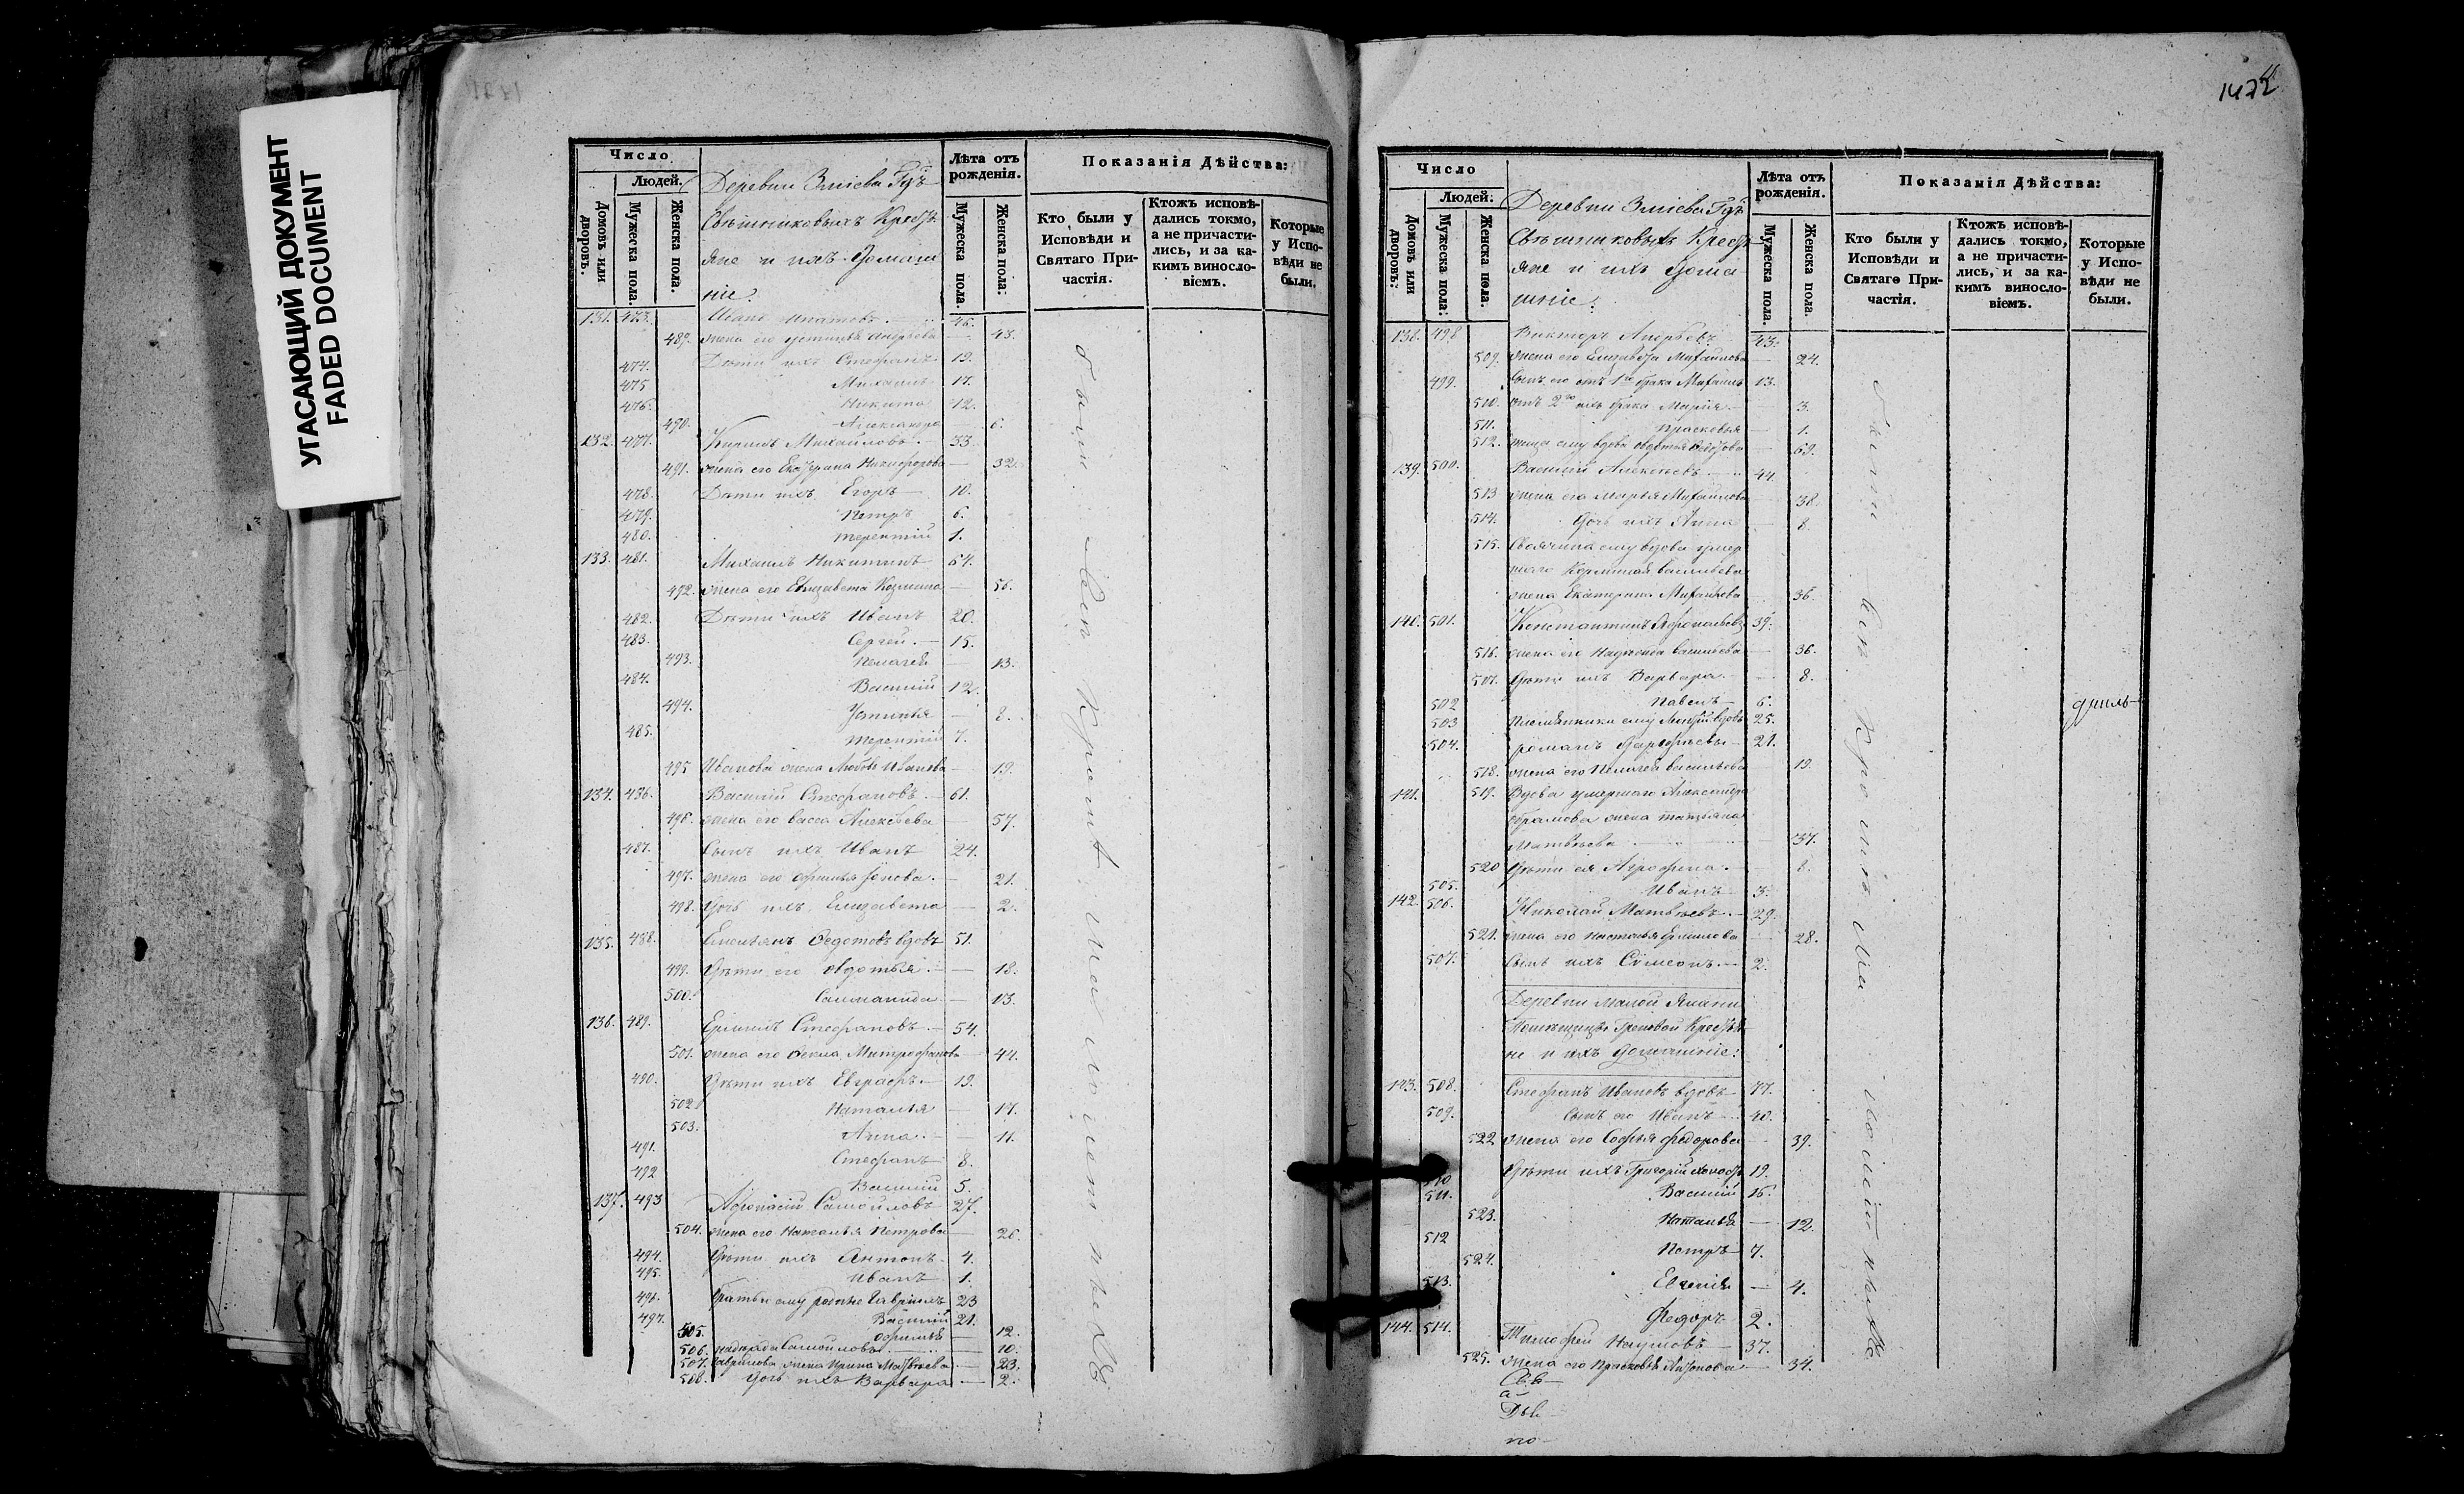 УГАСАЮЩИЙ ДОКУМЕНТ
FADED DOCUMENT
Число
Людей.
Домовъ или дворовъ.
Мужеска пола.
Женска пола.
Деревни Зміева Г
Свѣшниковыхъ Кресть
яне и ихъ домаш
ніе:
Лѣта отъ рожденія.
Мужеска пола.
Женска пола:
Показанія Дѣйства:
Кто были у Исповѣди и Святаго Причастія.
Ктожъ исповѣдались токмо, а не причастились, и за какимъ винословіемъ.
Которые у Исповѣди не были.
131. 473. Иванъ Игнатовъ 46.
489. жена его Устинья Андреева 43.
474. Дѣти ихъ Стефанъ 19.
475 Михаилъ 17.
476. Никита 12.
490. Александра 6.
132. 477. Михайловъ 33.
491. жена его Екатерина Никифорова 32.
478. Дѣти ихъ Егоръ 10.
479. Петръ 6.
480. Терентій 1.
133. 481. Михаилъ Никитинъ 64.
492. жена его Елизавета Козмина 56.
482. Дѣти ихъ Иванъ 20.
483. Сергей 15.
493. Пелагея 13.
484. Василій 12.
494. Устинья 8.
485. Терентій 7.
495 Иванова жена Любовь Иванова 19.
134. 436. Василій Стефановъ 61.
496. жена его Васса Алексѣева 57.
487. Сынъ ихъ Иванъ 24.
497. жена его 21.
498. Дочь ихъ Елизавета 2.
135. 488. Емельянъ Федотовъ вдовъ 51.
499. Дѣти его Овдотья 18.
500. Саломанида 13.
136. 489. Стефановъ 54.
501. жена его Фекла Митрофанова 44.
490. Дѣти ихъ Евграфъ 19.
502. Наталья 17.
503. Анна 11.
491. Стефанъ 8.
492 Василій 5.
137. 493 Афонасій Самойловъ 27.
504. жена его Наталья Петрова 26.
494. Дѣти ихъ Антонъ 4.
495. Иванъ 1.
496. Братья ему родные Гаврилъ 23
497. Василій 21.
505. Офимья 12.
506. Самойловы 10.
507. Гаврилова жена Ирина Матвѣева 23.
508. Дочь ихъ Варвара 2.
были
1472
Число
Людей.
Домовъ или дворовъ:
Мужеска пола:
Женска пола.
Деревни Зміева Г
Свѣшниковыхъ Кресть
яне и ихъ домаш
ніе:
Лѣта отъ рожденія.
Мужеска пола.
Женска пола.
Показанія Дѣйства:
Кто были у Исповѣди и Святаго Причастія.
Ктожъ исповѣдались токмо, а не причастились, и за какимъ винословіемъ.
Которые у Исповѣди не были.
138. 498 Викторъ Андрѣевъ 43.
509. жена его Елизавета Михайлова 24.
499. Сынъ его отъ 1го брака Михаилъ 13.
510. отъ 2го ихъ брака Марія 3.
511. Прасковья 1.
512. теща ему вдова Овдотья 69.
139. 500. Василій Алексѣевъ 44.
513 жена его Марья Михайлова 38.
514. Дочь ихъ Анна 8.
515. Своячина ему вдова умер
шаго Васильева
жена Екатерина Михайлова 36.
140. 501. Константинъ 39.
516. жена его Надежда Васильева 36.
507. Дѣти ихъ Варвара 8.
502 Павелъ 6.
503 Племянники ему вдовъ 25.
504. Романъ 21.
518. жена его Пелагея Васильева 19.
141. 519. Вдова умершаго Александра
Абрамова жена Татьяна
Матвѣева 37.
520 Дѣти ея Агрофена 8.
505. Иванъ 3.
142. 506. Николай Матвѣевъ 29.
521. жена его Наталья Ермилова 28.
507. Сынъ ихъ Сѵмеонъ 2.
Деревни Малой
Помѣщицы Кресть
не и ихъ домашніе:
143. 508. Стефанъ Ивановъ вдовъ 77.
509. Сынъ его Иванъ 40.
522 жена его Софья Федорова 39.
510 Дѣти ихъ Григорій холостъ 19.
511. Василій 16.
523. Наталья 12.
512 Петръ 7.
524. Евгенія 4.
513. Федоръ 2.
144. 514. Тимофей Наумовъ 37.
525. жена его Прасковья Антонова 34.
были